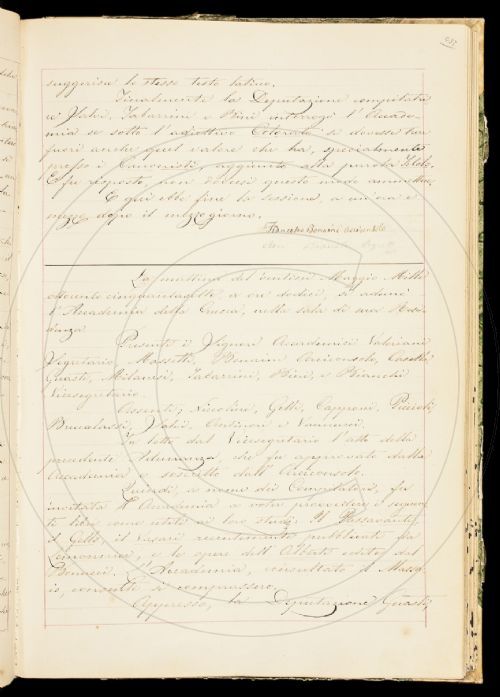 suggerisce lo stesso testo latino.
Finalmente la Deputazione compilatrice
Valeri, Tabarrini e Bini interrogò l'Accade-
mia se sotto l'aggettivo Colorato si dovesse trar
fuori anche quel valore che ha, specialmente
presso i Canonisti, aggiunto alla parola Titolo.
E fu risposto, non doversi questo modo ammettere.
E qui ebbe fine la sessione, a un'ora e
mezzo dopo il mezzogiorno.
Francesco Bonaini Arciconsolo
La mattina del Maggio Mille
ottocento cinquantasette, a ore dodici, si adunò
l'Accademia della Crusca, nella sala di sua Resi-
denza.
Presenti i Signori Accademici Valeriani
Segretario, Massetti, Bonaini Arciconsolo, Casella,
Guasti, Milanesi, Tabarrini, Bini, e Bianchi
Vicesegretario.
Assenti, Niccolini, Gelli, Capponi,
Brucalassi, e Vannucci.
Fu letto dal Vicesegretario l'atto della
precedente Adunanza, che fu approvato dalla
Accademia e sescritto dall'Arciconsolo.
Quindi, a nome dei Compilatori, fu
invitata l'Accademia a voler provvedere i seguen-
ti libri come utili ai loro studi: Il Passavanti
il Gello, il Vasari recentemente pubblicati da
Lemonnier, e le opere dell'Alberti edite dal
Bonucci. L'Accademia, consultato il Massa-
io, consentì si comprassero.
Appresso, la Deputazione Guasti,